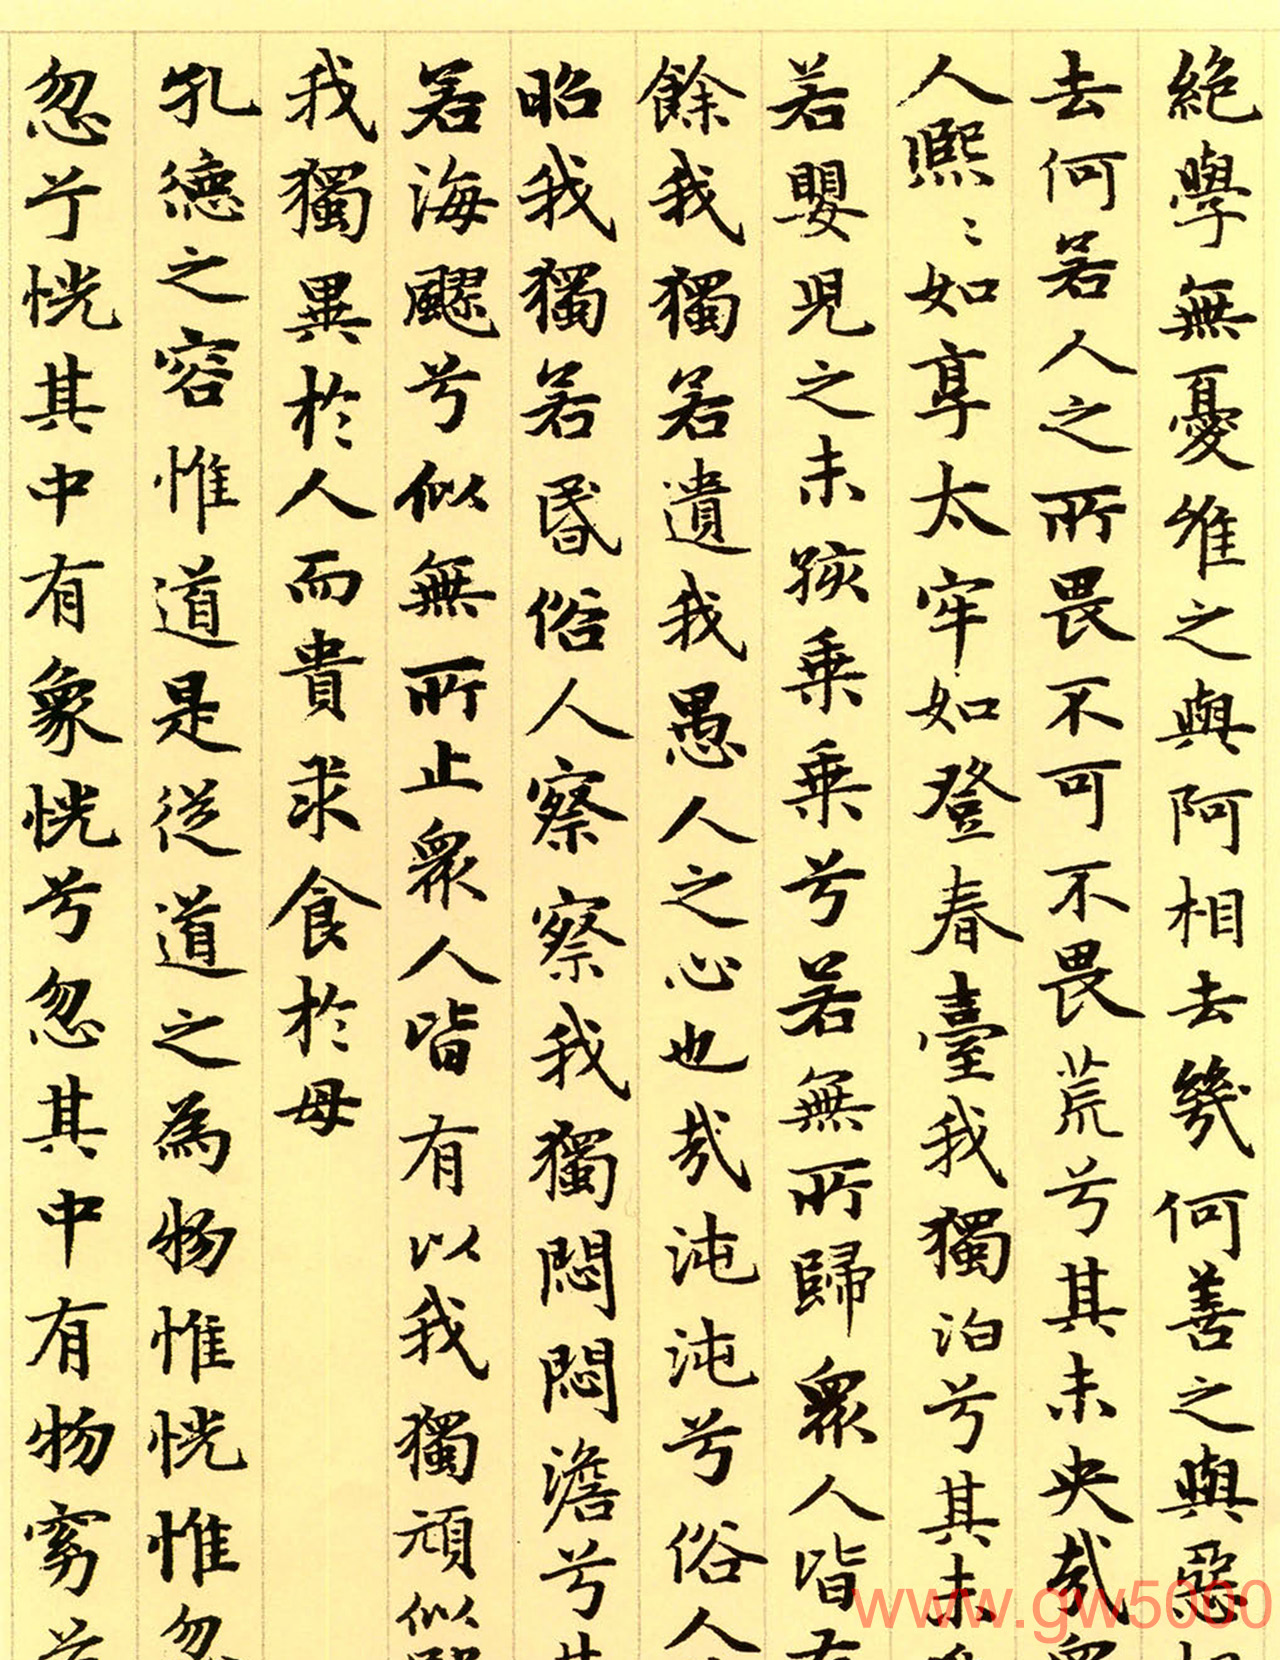 絶學無憂唯之與阿相去幾何善之與惡相
去何若人之所畏不可不畏荒兮其未央哉衆
人熙〻如享太牢如登春臺我獨泊兮其未
若嬰兒之未孩乗乗兮若無所歸衆人皆有
餘我獨若遺我愚人之心也哉沌沌兮俗人
昭我獨若昬俗人察察我獨悶悶澹兮其
若海飂兮似無所止衆人皆有以我獨頑似鄙
我獨異於人而貴求食於母
孔德之容惟道是従道之為物惟恍惟忽
忽兮恍其中有象恍兮忽其中有物窈兮
www.gw5000